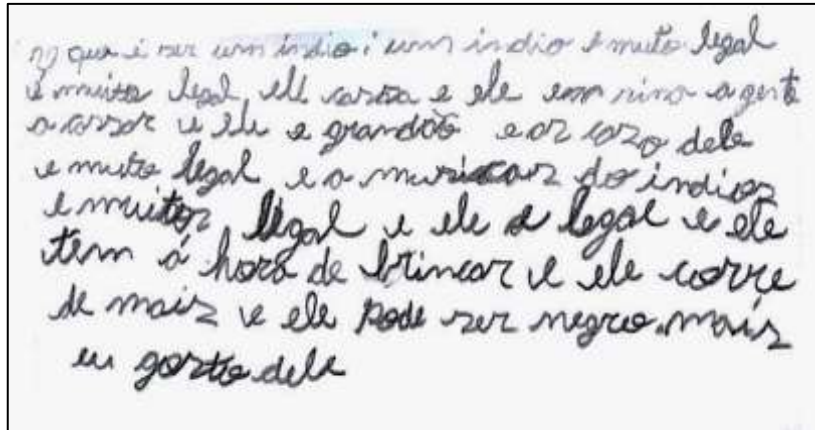 que é ser um índio: um indio é muto legal
e muito legal ele cassa e ele em sina a gente
a cassar e ele e grandão e as cazo dele
e muto legal e a do indios
e muitos legal e ele e legal e ele
tem á hora de brincar e ele corre
de mais e ele pode ser negro mais
eu gosto dele